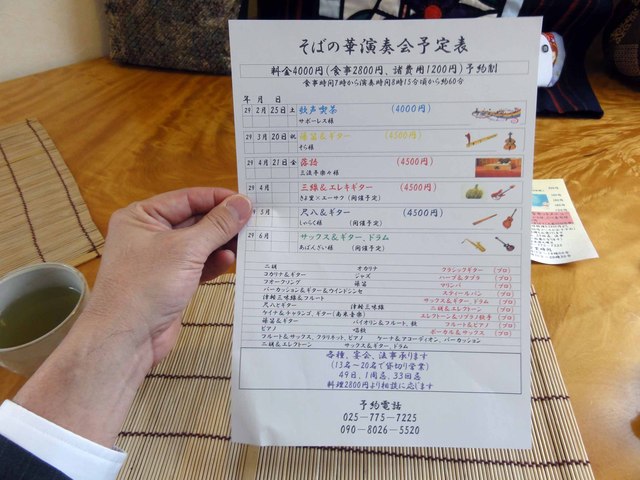 そばの華演奏会予定表
料金4000円(食事2800円、諸費用1200円)予約制
食事時間7時から演奏時間8時15分頃から約60分
年 月 日
29 2月 25日 土 歌声喫茶 (4000円)
サポーレス様
29 3月 20日 祝 篠笛&ギター (4500円)
そら様
29 4月 21日 金 落語 (4500円)
三流亭楽々様
29 4月 三線&エレキギター (4500円)
きよ里×エーサク(開催予定)
29 5月 尺八&ギター (4500円)
しゃらく様 (開催予定)
29 6月 サックス&ギター、ドラム
あばんざい様 (開催予定)
二胡 オカリナ クラシックギター (プロ)
コカリナ&ギター ジャズ ハープ&タブラ (プロ)
フォークソング 篠笛 マリンバ (プロ)
パーカッション&ギター&ウインドシンセ スチールパン (プロ)
津軽三味線&フルート サックス&ギター、ドラム (プロ)
尺八とギター 津軽三味線 二胡&エレクトーン (プロ)
ケイナ&チャランゴ、ギター(南米音楽) エレクトーン&ソプラノ歌手 (プロ)
篠笛&ギター バイオリン&フルート、鼓 フルート&ピアノ (プロ)
ピアノ 謡獣 ボーカル&サックス (プロ)
フルート&サックス、クラリネット、ピアノ ケーナ&アコーディオン、パーカッション
二胡&エレクトーン サックス&ギター、ドラム
各種、宴会、法事承ります
(13名~20名で貸切り営業)
49日、1周忌、33回忌
料理2800円より相談に応じます
予約電話
025-775-7225
090-8026-5520